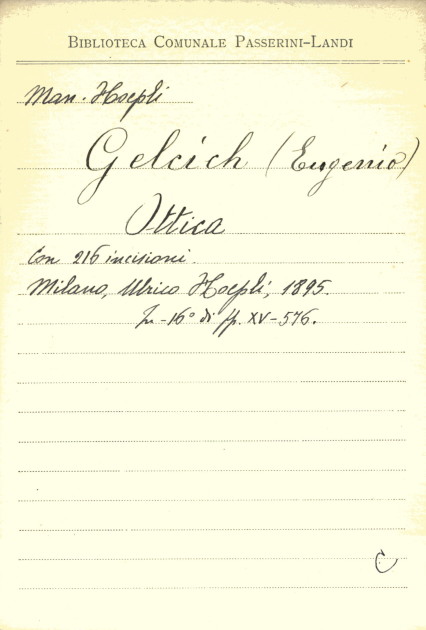 BIBLIOTECA COMUNALE PASSERINI-LANDI
Man. Hoepli
Gelcich (Eugenio)
Ottica
Con 216 incisioni.
Milano, Ulrico Hoepli, 1895.
In-16° di pp. XV-576.
C